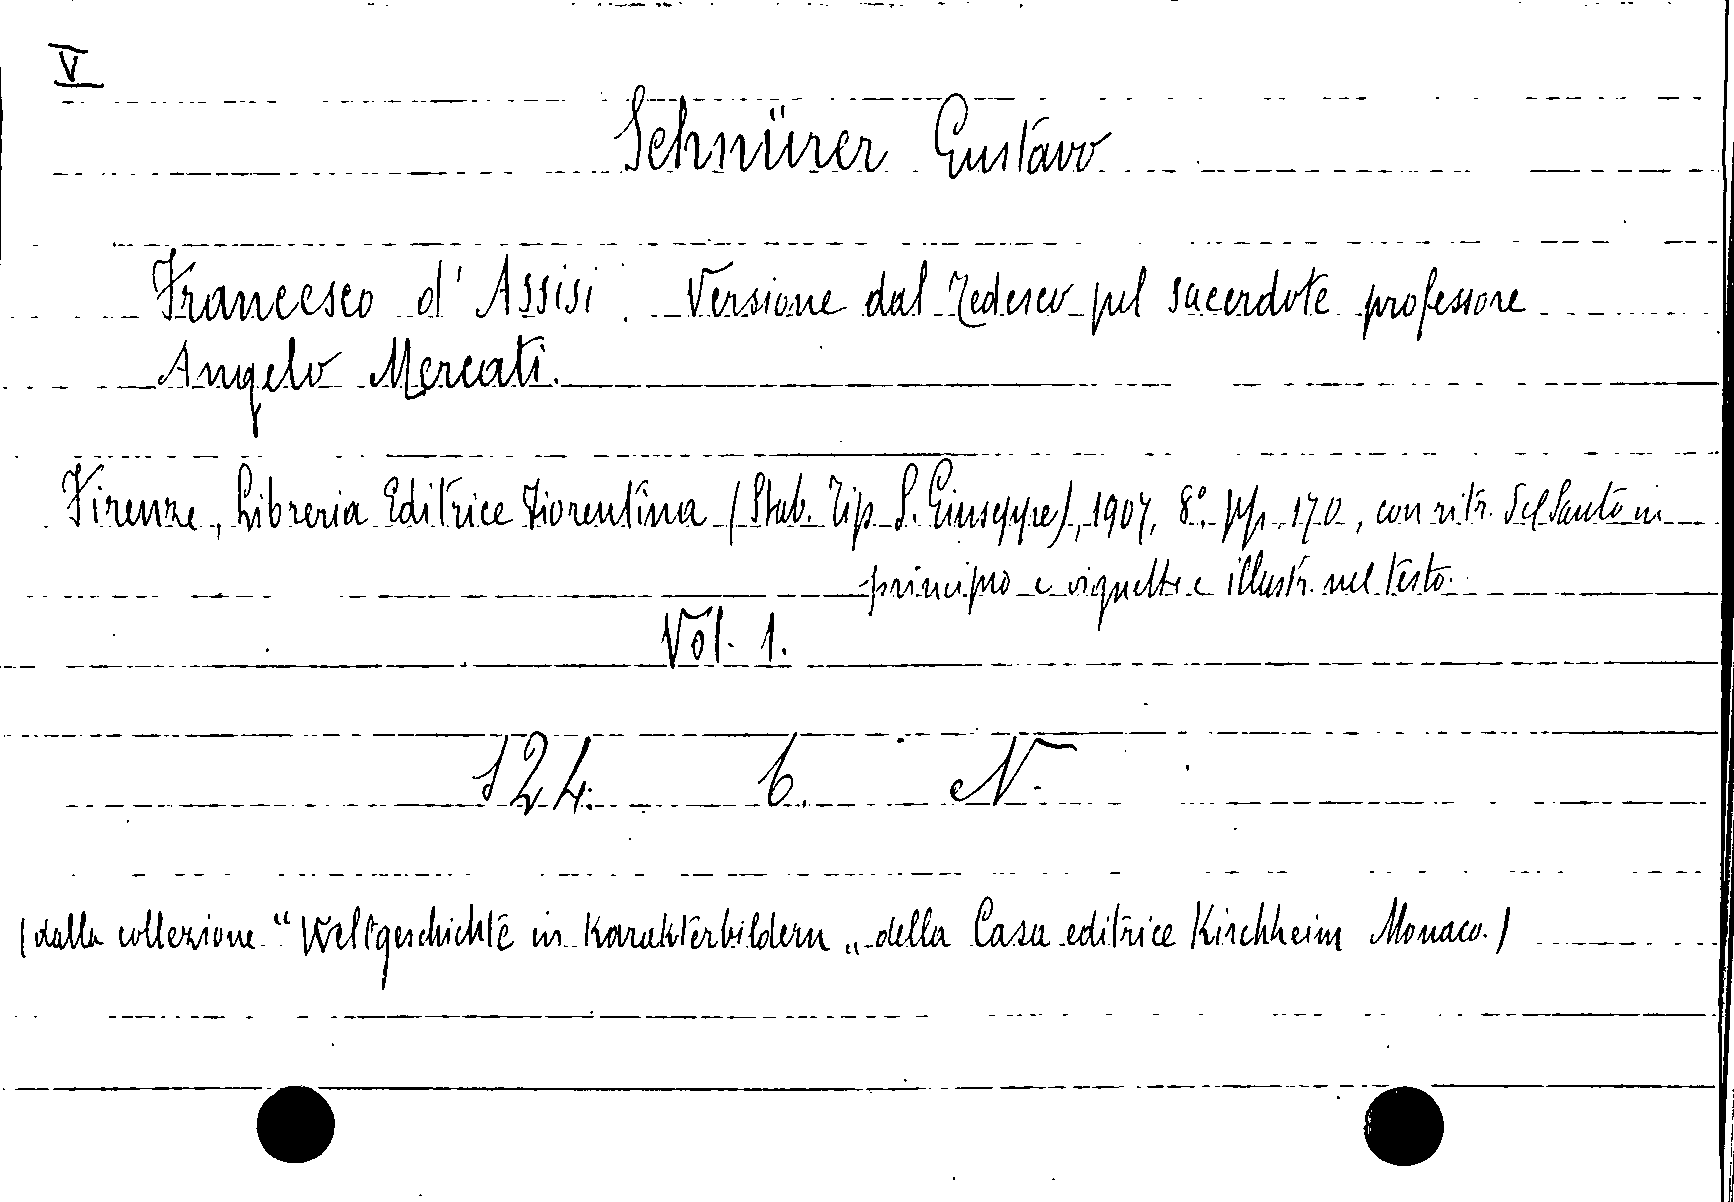 V
Schnürer Gustavo
Francesco d'Assisi. Versione dal Tedesco pel sacerdote professore
Angelo Mercati.
Firenze, Libreria Editrice Fiorentina (Stab. Tip. S. Giuseppe), 1907, 8.° pp. 170, con ritr. del Santo in
principio e vignette e illustr. nel testo.
Vol. 1.
124. 6. N.
(dalla collezione "Weltgeschichte in Karakterbildern„ della Casa editrice Kirchheim Monaco.)